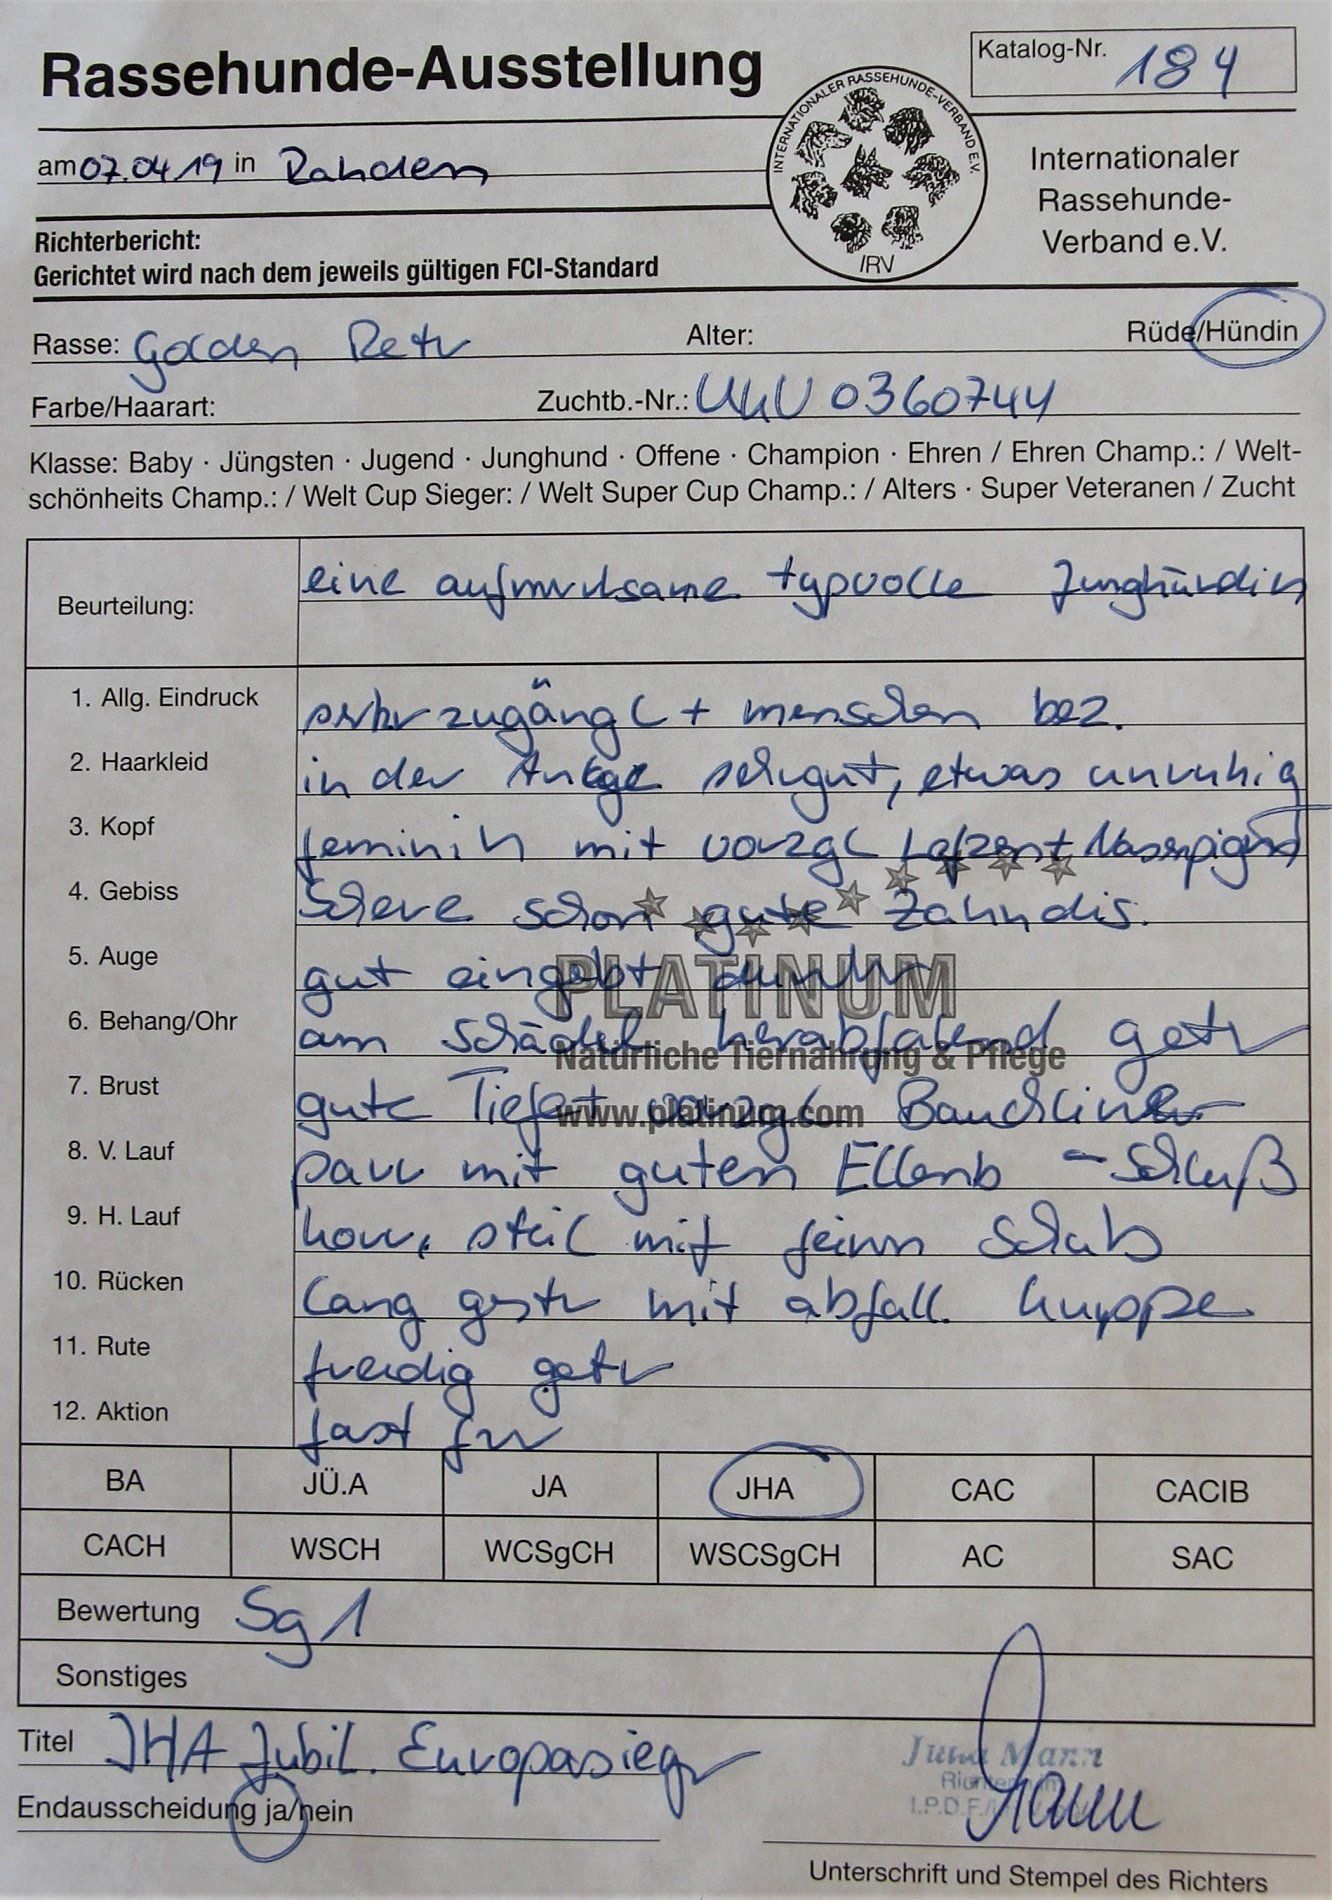 Rassehunde-Ausstellung
Katalog-Nr. 184
am 07.04.19 in Rahden
INTERNATIONALER RASSEHUNDE-VERBAND E.V.
IRV
Internationaler
Rassehunde-
Verband e.V.
Richterbericht:
Gerichtet wird nach dem jeweils gültigen FCI-Standard
Rasse: Golden Retr Alter: Rüde/Hündin
Farbe/Haarart: Zuchtb.-Nr.: UKU 0360744
Klasse: Baby · Jüngsten · Jugend · Junghund · Offene · Champion · Ehren / Ehren Champ.: / Welt-
schönheits Champ.: / Welt Cup Sieger: / Welt Super Cup Champ.: / Alters · Super Veteranen / Zucht
Beurteilung: eine aufmerksame typvolle Junghündin
1. Allg. Eindruck sehr zugängl + menschen bez.
2. Haarkleid in der Anlage sehrgut, etwas unruhig
3. Kopf feminin mit vorzgl Lefzen+
4. Gebiss Schere schon gute Zahndis.
5. Auge gut eingebt dunkl
6. Behang/Ohr am Schädel herabfallend getr
7. Brust gute Tiefe+ vorzgl Bauchlinie
8. V. Lauf parr mit guten Ellenb - Schluß
9. H. Lauf korr, steil mit feinen Schub
10. Rücken lang gestr mit abfall. Kruppe
11. Rute freudig getr
12. Aktion fast fr
PLATINUM
Natürliche Tiernahrung & Pflege
www.platinum.com
BA JÜ.A JA JHA CAC CACIB
CACH WSCH WCSgCH WSCSgCH AC SAC
Bewertung Sg 1
Sonstiges
Titel JHA Jubil. Europasiegr
Mann
Endausscheidung ja/nein
Unterschrift und Stempel des Richters